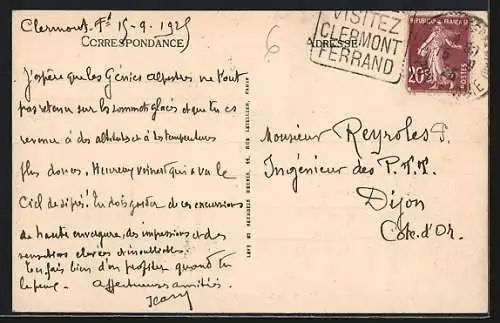 Clermont-Fd 15-9-1925
CORRESPONDANCE
6
ADRESSE
VISITEZ
CLERMONT
FERRAND
REPUBLIQUE FRANÇAISE
20c
POSTES
J'espère que les Génies alpestres ne t'ont
pas retenu sur les sommets glacés et que tu es
revenu à des altitudes et à des températures
plus douces. Heureux qui a vu le
Ciel de si près! Tu dois garder de ces excursions
de haute envergure, des impressions et des
sensations élevées et inoubliables.
Tu fais bien d'en profiter quand tu
le peux. Affectueuses amitiés
Monsieur Reyroles P.
Ingénieur des P.T.T.
Dijon
Côte-d'Or.